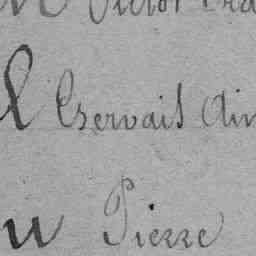 Victor
l Gervais Aim
u Pierre